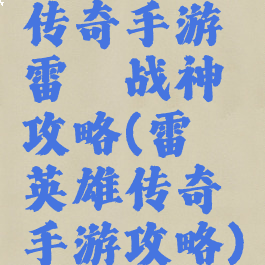 传奇手游
雷 战神
攻略(雷
英雄传奇
手游攻略)